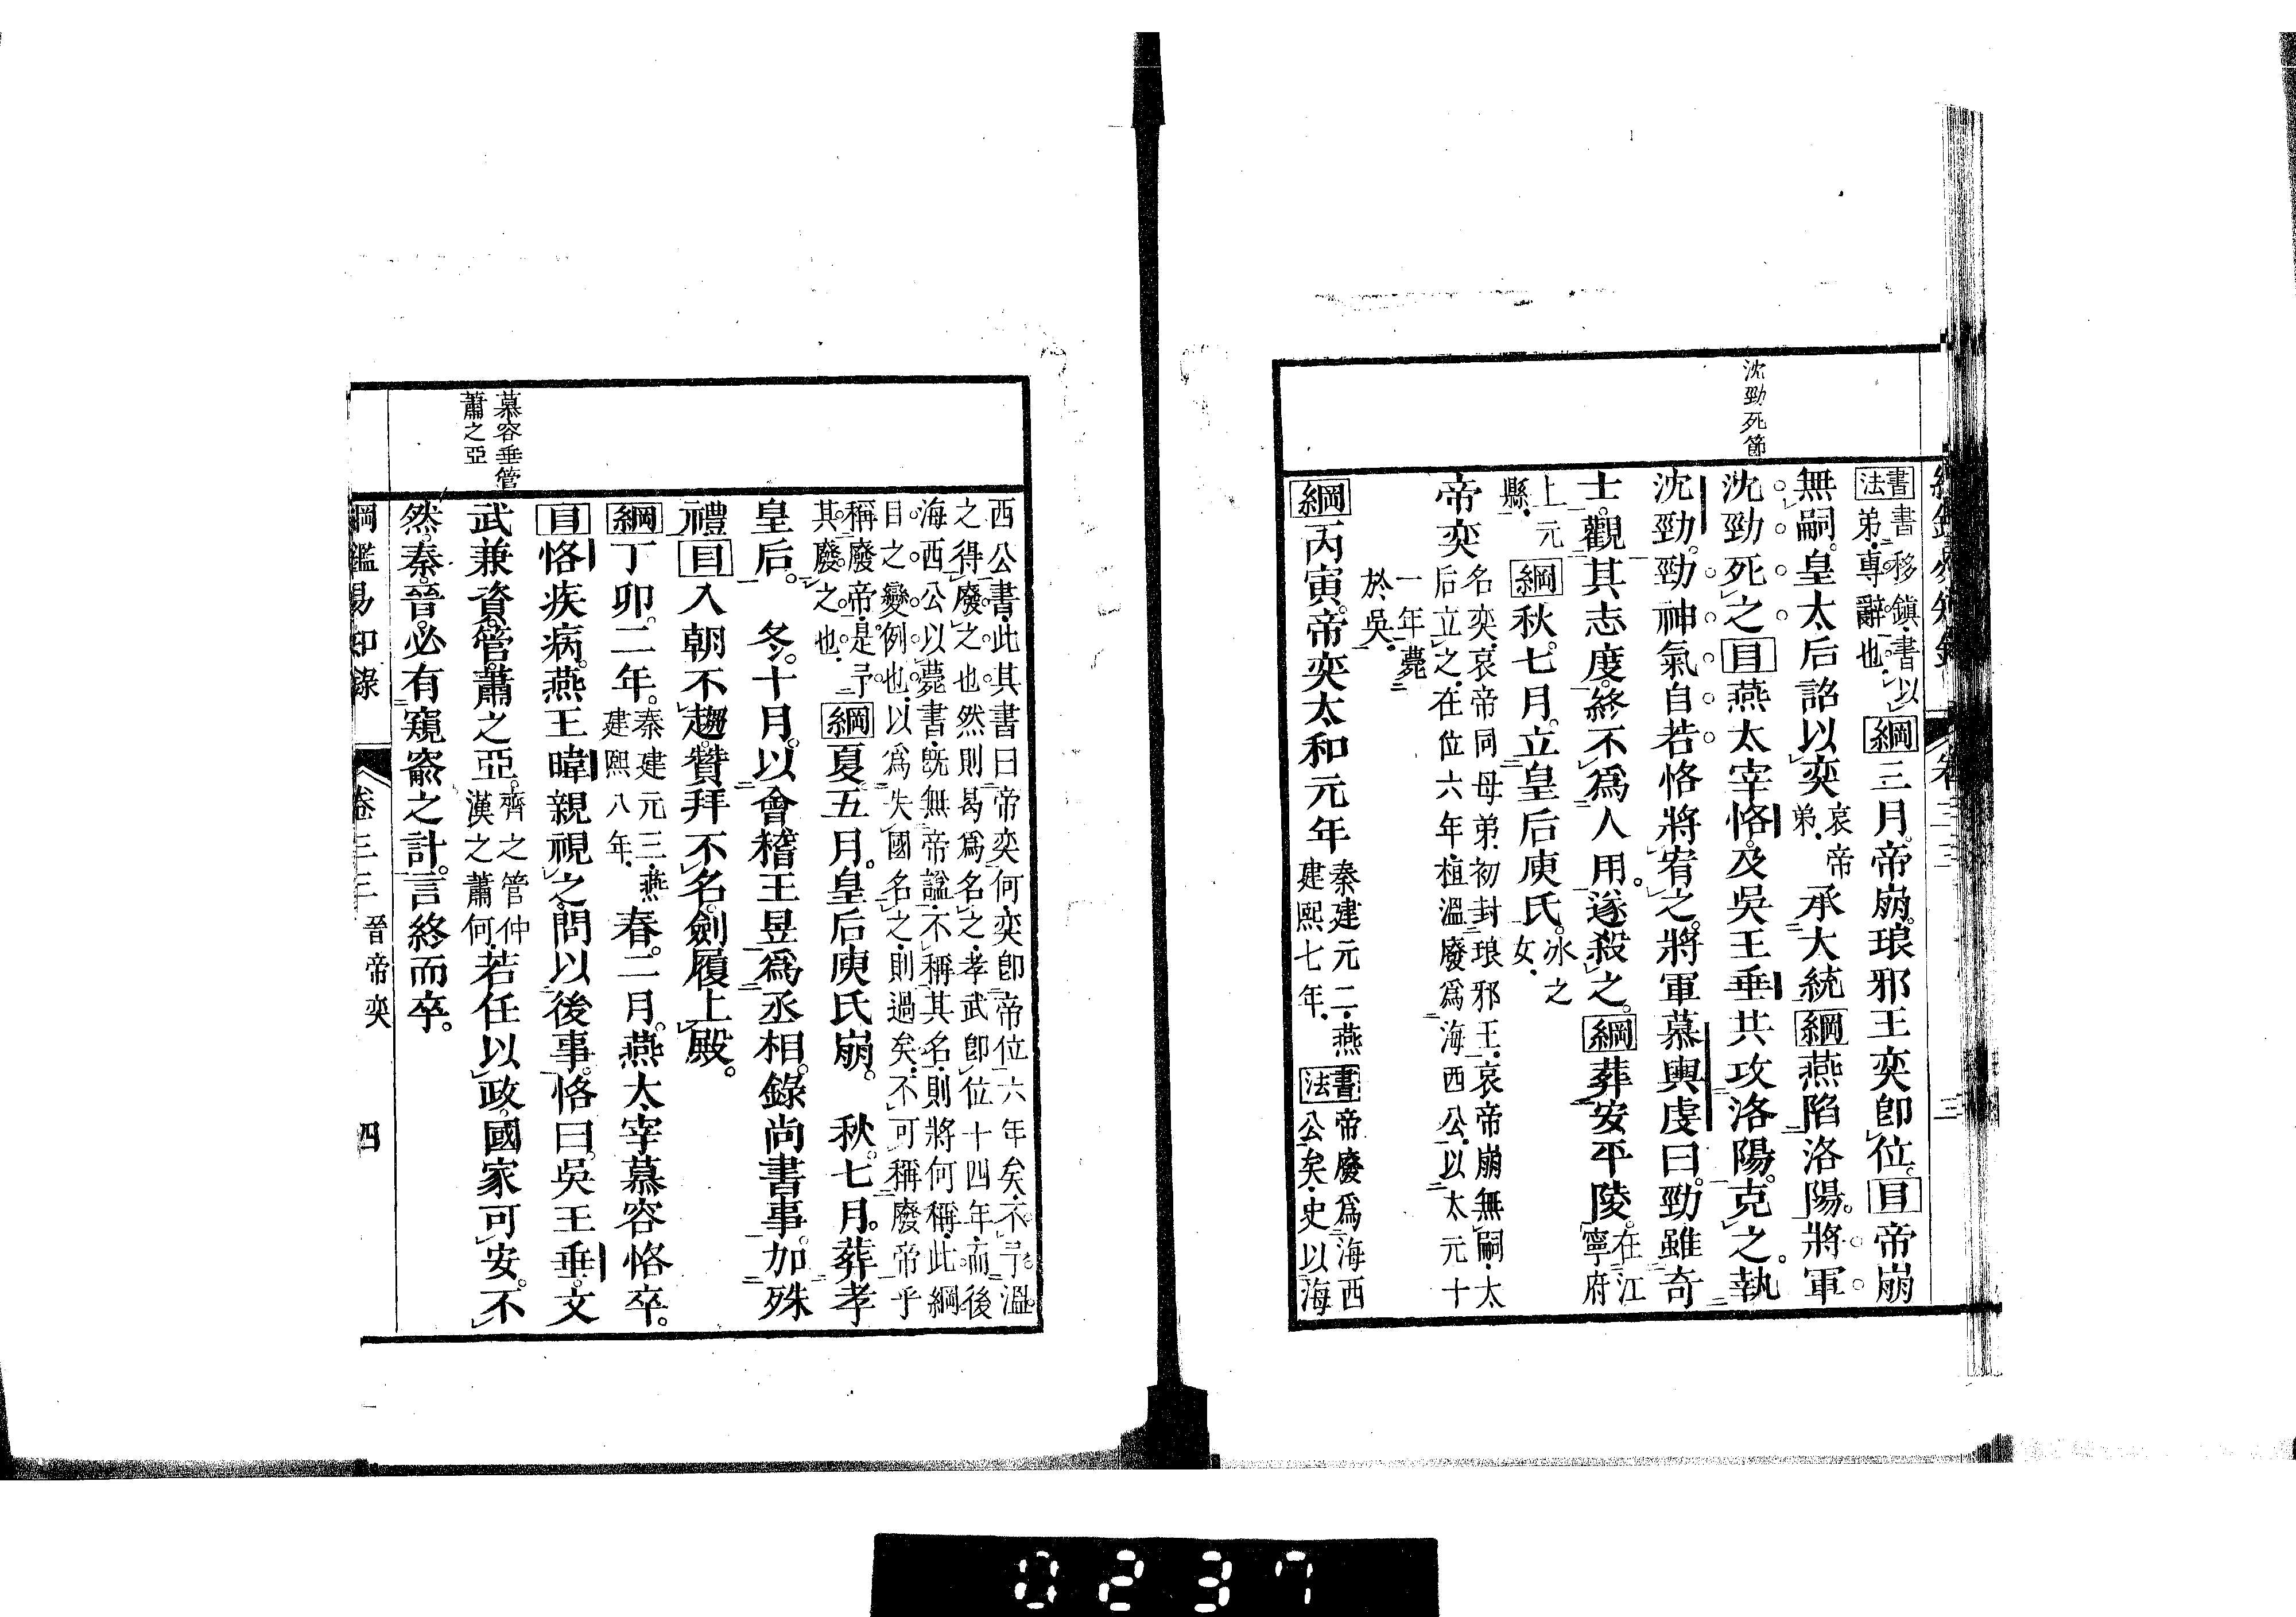 沈勁死節
書法書移鎮書以弟專辭也綱三月。帝崩。琅邪王奕卽位。目帝崩
無嗣。皇太后詔以奕哀帝弟承大統綱燕陷洛陽。將軍
沈勁死之目燕太宰恪及吳王垂共攻洛陽。克之。執
沈勁。勁神氣自若。恪將宥之。將軍慕輿虔曰。勁雖奇
士。觀其志度。終不爲人用。遂殺之。綱葬安平陵。在江寧府
上元縣綱秋。七月。立皇后庾氏。冰之女
帝奕名奕哀帝同母弟初封琅邪王哀帝崩無嗣太后立之在位六年桓溫廢爲海西公以太元十
一年薨於吳
綱丙寅。帝奕太和元年秦建元二燕建熙七年書法帝廢爲海西公矣史以海
西公書此其書曰帝奕何奕卽帝位六年矣不予溫
之得廢之也然則曷爲名之孝武卽位十四年而後
海西公以薨書旣無帝諡不稱其名則將何稱此綱
目之變例也以爲失國名之則過矣不可稱廢帝乎
稱廢帝是予其廢之也綱夏五月。皇后庾氏崩。秋。七月。葬孝
皇后。冬。十月。以會稽王昱爲丞相。錄尚書事。加殊
禮目入朝不趨。贊拜不名。劍履上殿。
綱丁卯。二年。秦建元三燕建熙八年春。二月。燕太宰慕容恪卒。
目恪疾病。燕王暐親視之。問以後事。恪曰。吳王垂。文
武兼資。管蕭之亞。齊之管仲漢之蕭何若任以政。國家可安。不
然。秦晉必有窺窬之計。言終而卒。
慕容垂管
蕭之亞
綱鑑易知錄 卷三三 晉帝奕 四